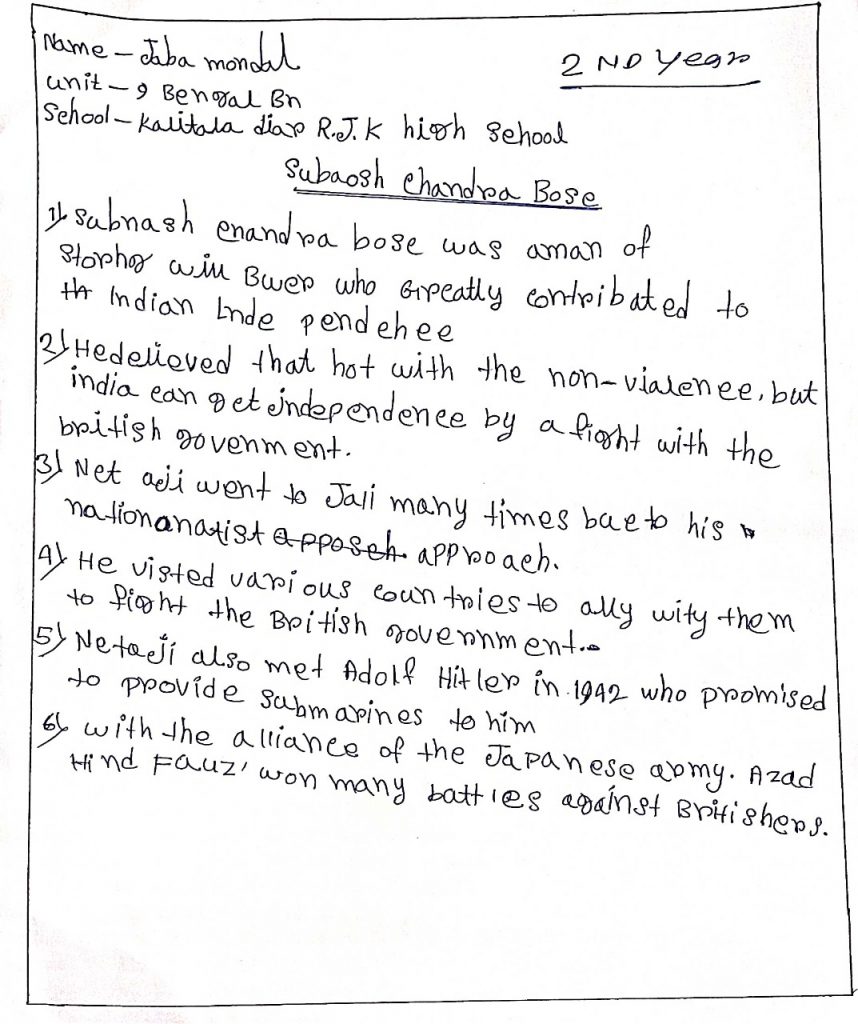 Name – Jaba mondal
2 ND Year
unit – 9 Bengal Bn
School – Kalitala diar R.J.K high School
Subaosh Chandra Bose
1) Subnash enandra bose was aman of
Stophor will Bwer who Greatly contributed to
th Indian Inde pendehee
2) Hedelieved that hot with the non-vialence, but
india can get independence by a fight with the
british govenment.
3) Net aeji went to Jail many times baeto his
nationanatist apposeh approach.
4) He visted various countries to ally wity them
to fight the British government.
5) Netaeji also met Adolf Hitler in 1942 who promised
to provide submarines to him
6) with the alliance of the Japanese army. Azad
Hind Fauz' won many battles against Britishers.